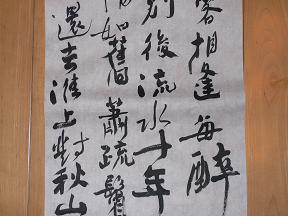 客相逢每醉
別後流水十年
情如舊蕭疏鬢
還去淮上對秋山